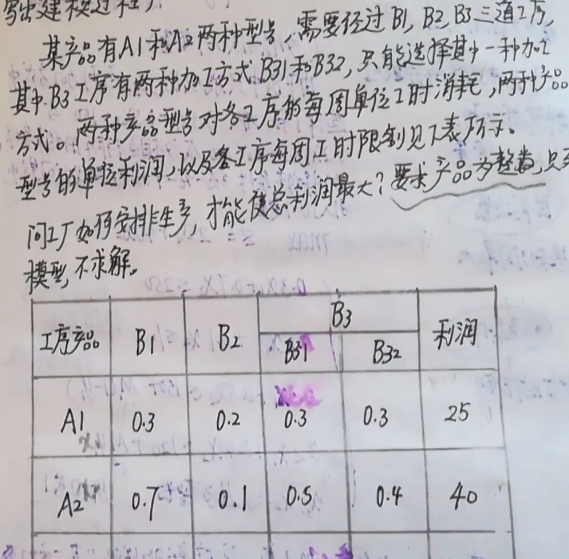 写出建模过程，
某产品有A1和A2两种型号，需要经过B1，B2，B3三道工序，
其中B3工序有两种加工方式B31和B32，只能选择其中一种加工
方式。两种产品型号对各工序的每周单位工时消耗，两种产品
型号的单位利润，以及各工序每周工时限制见下表所示。
问工厂如何安排生产，才能使总利润最大？要求产品为整数，只
模型，不求解。
工序产品 B1 B2 B3 利润
B31 B32
A1 0.3 0.2 0.3 0.3 25
A2 0.7 0.1 0.5 0.4 40